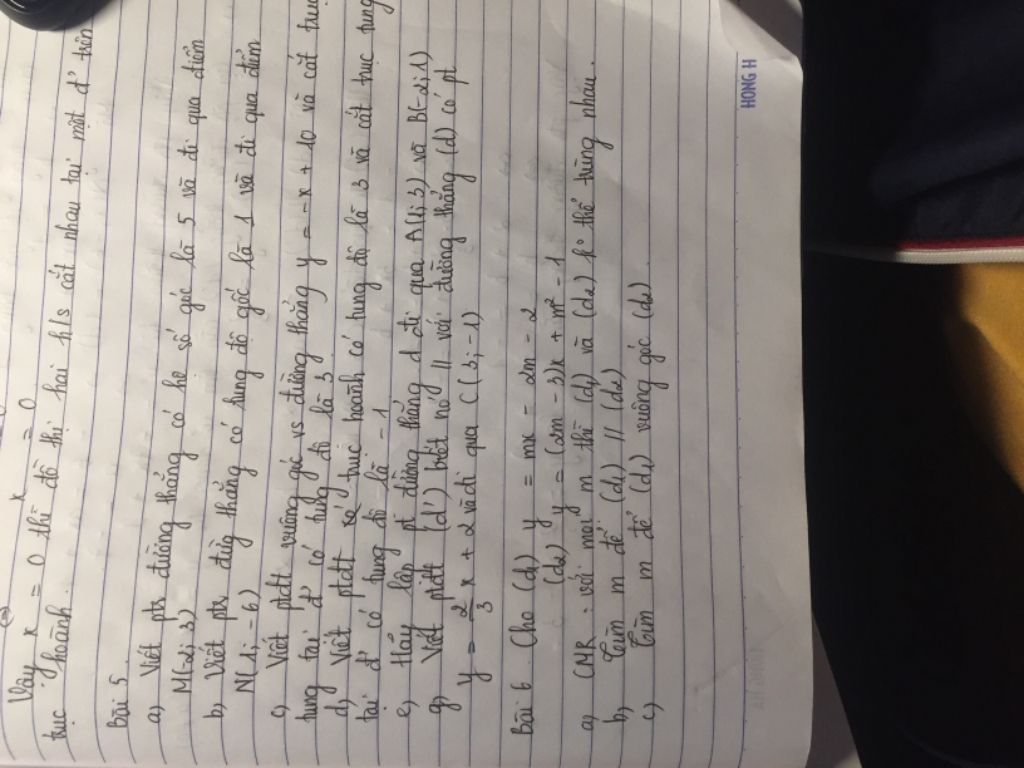 Vậy x = 0 thì đồ thị hai h/s cắt nhau tại một đ' trên
trục hoành.
Bài 5.
a) Viết ptr đường thẳng có hệ số góc là 5 và đi qua điểm
M(2; 3)
b) Viết ptr đg thẳng có tung độ gốc là 1 và đi qua điểm
N(1; -6)
c) Viết ptđt vuông góc vs đường thẳng y = -x + 10 và cắt trục
tung tại đ' có tung độ là 3
d) Viết ptđt trục hoành có tung độ là 3 và cắt trục tung
tại đ' có tung độ là -1
e) Hãy lập pt đường thẳng d đi qua A(1; 3) và B(-2; 1)
g) Viết ptđt (d') biết nó // với đường thẳng (d) có pt
y = 2/3 x + 2 và đi qua C(3; -1)
Bài 6. Cho (d1) y = mx - 2m - 2
(d2) y = (2m - 3)x + m² - 1
a) CMR: với mọi m thì (d1) và (d2) k° thể trùng nhau.
b) Tìm m để (d1) // (d2)
c) Tìm m để (d1) vuông góc (d2)
HONG H